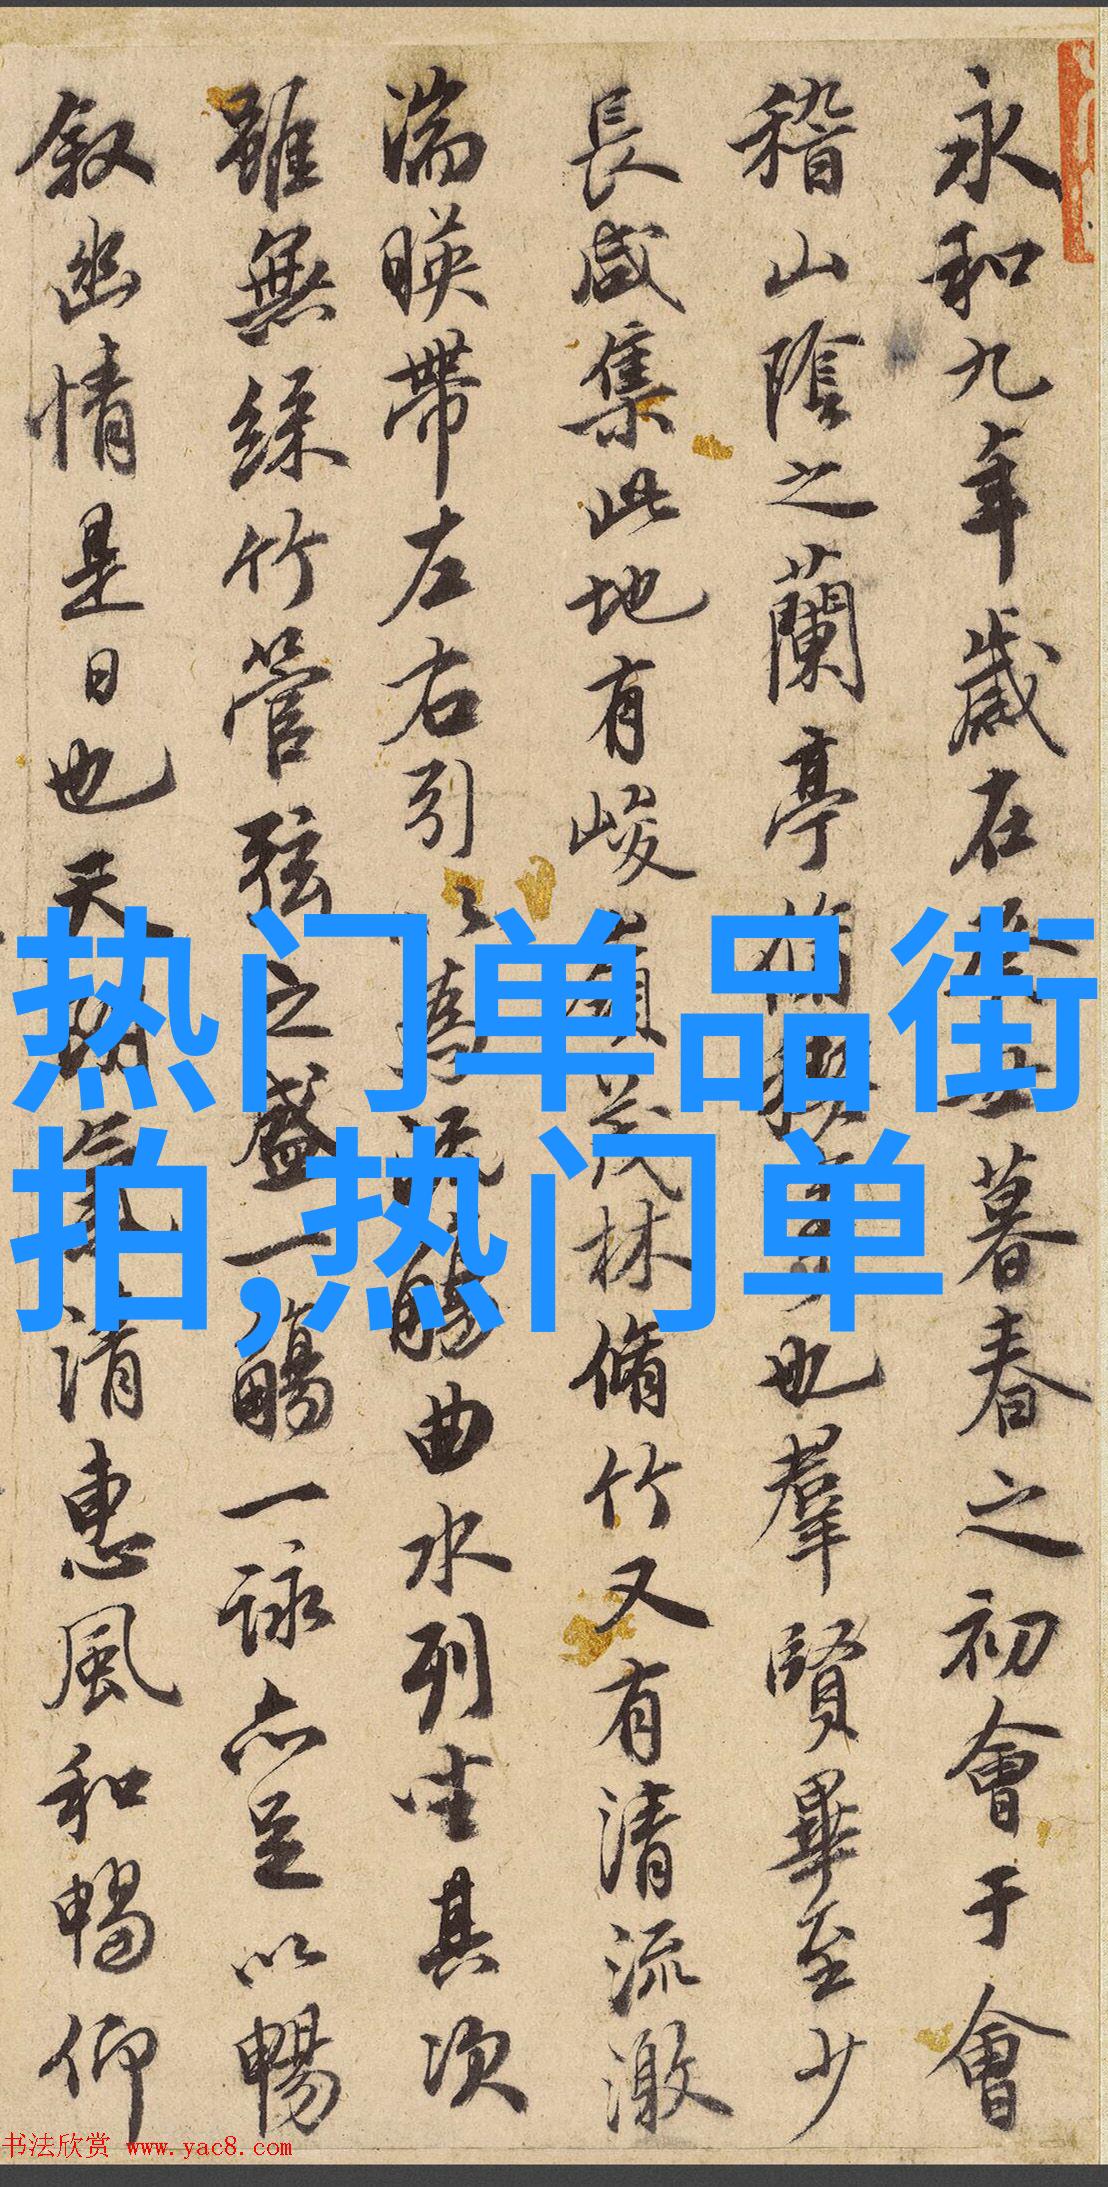 永和九年歲在癸丑暮春之初會于會
稽山陰之蘭亭脩稧事也羣賢畢至少
長咸集此地有峻領茂林脩竹又有清流激
湍暎帶左右引以為流觴曲水列坐其次
雖無絲竹管弦之盛一觴一詠亦足以暢
叙幽情是日也天朗氣清惠風和暢仰
热门单品街
拍,热门单
书法欣赏 www.yac8.com